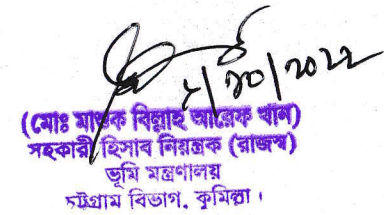 ৮/১০/২০২২
(মোঃ মাশুক বিল্লাহ আরেফ খান)
সহকারী হিসাব নিয়ন্ত্রক (রাজস্ব)
ভূমি মন্ত্রণালয়
চট্টগ্রাম বিভাগ, কুমিল্লা।